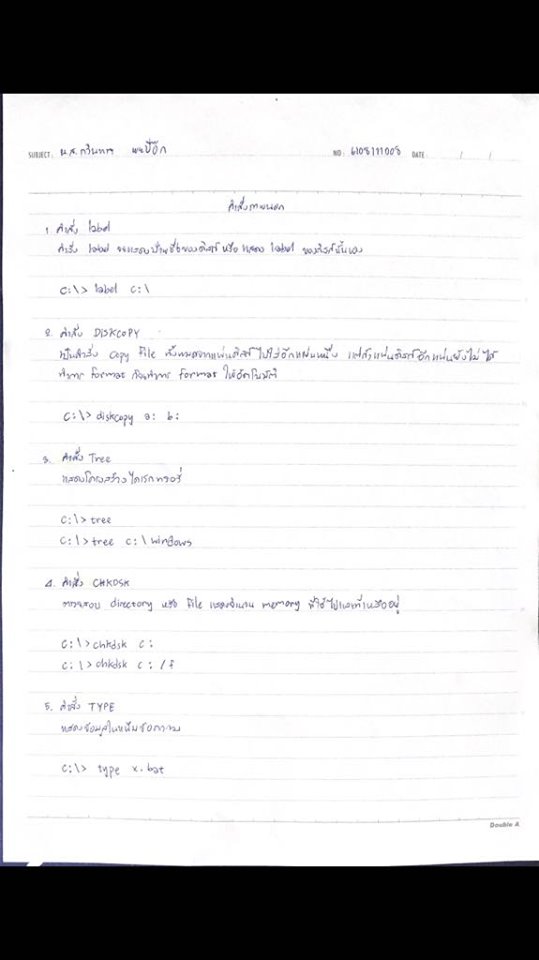 SUBJECT: น.ส. NO: 6108111008 DATE / /
คำสั่งภายนอก
1. คำสั่ง label
คำสั่ง label จะแสดงป้ายชื่อของดิสก์ หรือ แสดง label ของดิสก์นั้นเอง
C:\> label C:\
2. คำสั่ง DISKCOPY
เป็นคำสั่ง copy file ทั้งหมดจากแผ่นดิสก์ไปใส่อีกแผ่นหนึ่ง แต่ถ้าแผ่นดิสก์อีกแผ่นยังไม่ได้
ทำการ format ก็จะทำการ format ให้อัตโนมัติ
C:\> diskcopy a: b:
3. คำสั่ง Tree
แสดงโครงสร้างไดเรกทอรี่
C:\> tree
C:\> tree c:\windows
4. คำสั่ง CHKDSK
ตรวจสอบ directory หรือ file แสดงจำนวน memory ที่ใช้ไปและที่เหลืออยู่
C:\> chkdsk c:
C:\> chkdsk c: /f
5. คำสั่ง TYPE
แสดงข้อมูลในแฟ้มข้อความ
C:\> type x.bat
Double A